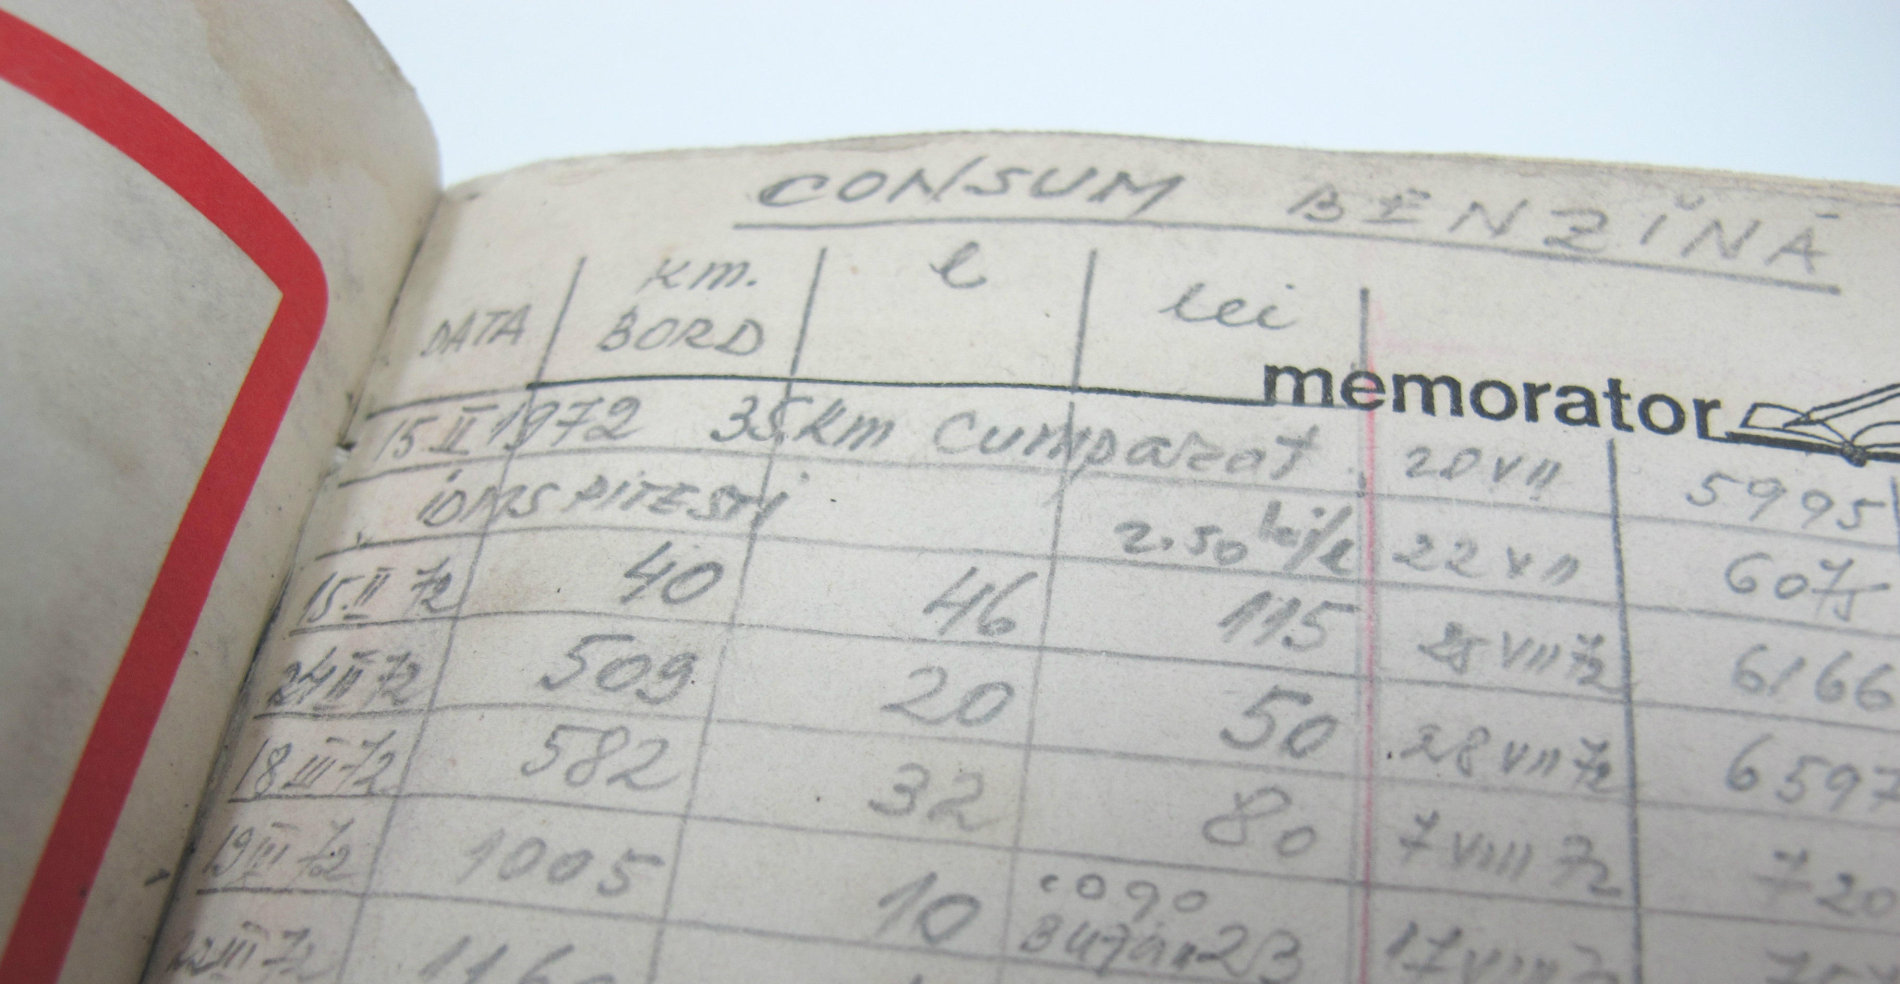 CONSUM BENZINĂ
DATA km. BORD l lei
memorator
15 II 1972 35 km Cumparat 20 VII 5995
IDMS PITESTI 2.50 lei/l 22 VII 6075
15.II 72 40 46 115 25 VII 72 6166
24 II 72 509 20 50 28 VII 72 6597
18 III 72 582 32 80 7 VIII 72 720
19 III 72 1005 10 23 17 VIII 7
22 III 72 116